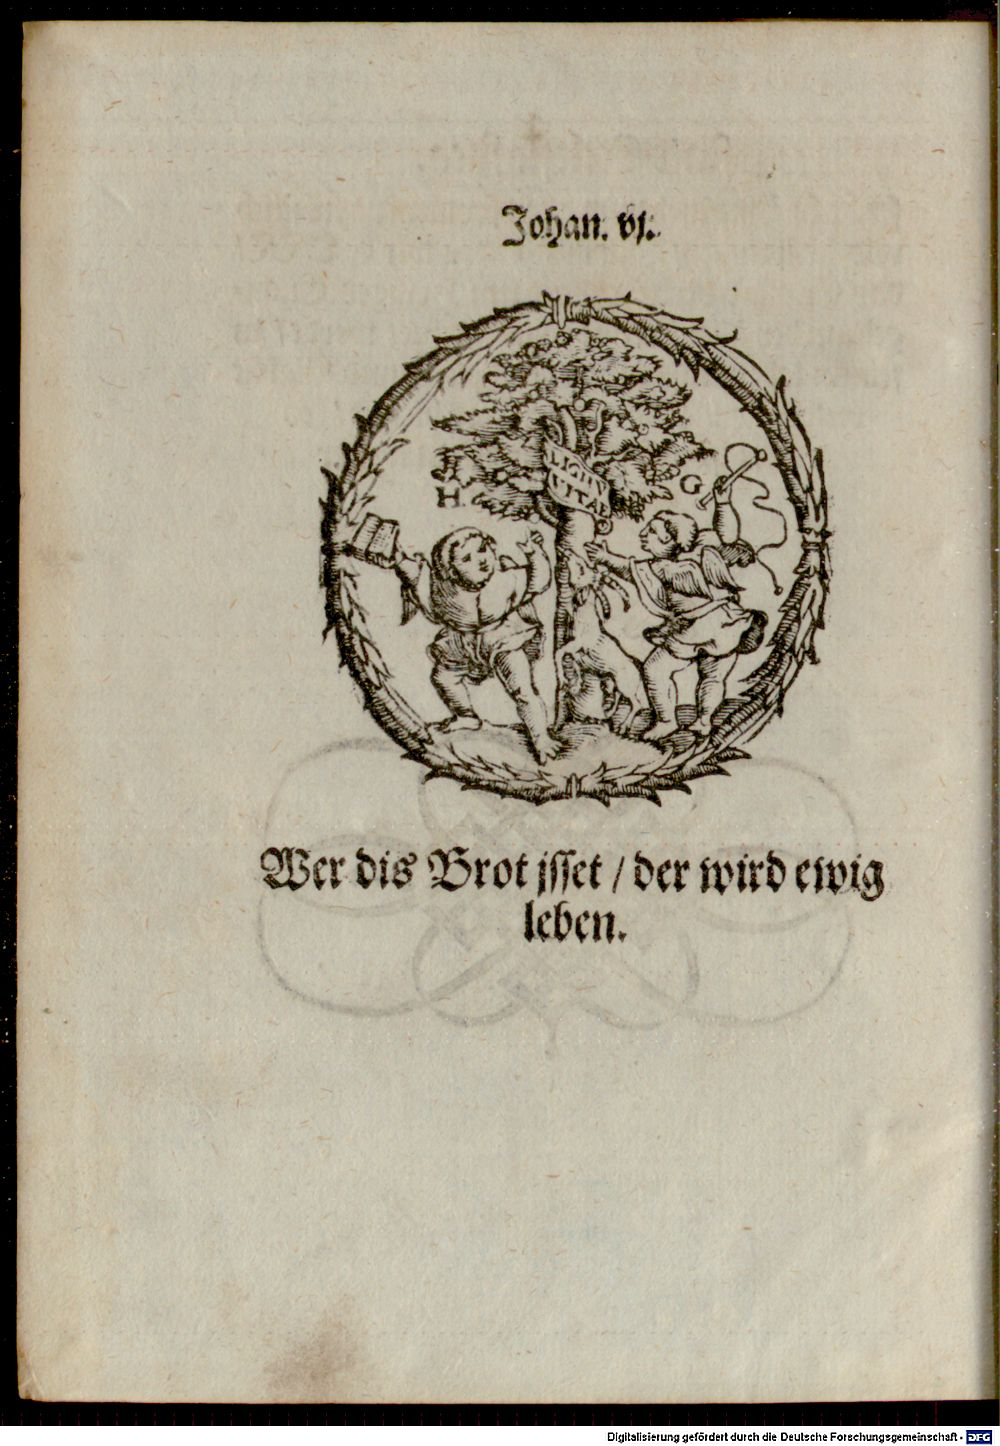 Johan. vj.
LIGNV
VITAE
H.
G
Wer dis Brot jsset / der wird ewig
leben.
Digitalisierung gefördert durch die Deutsche Forschungsgemeinschaft - DFG